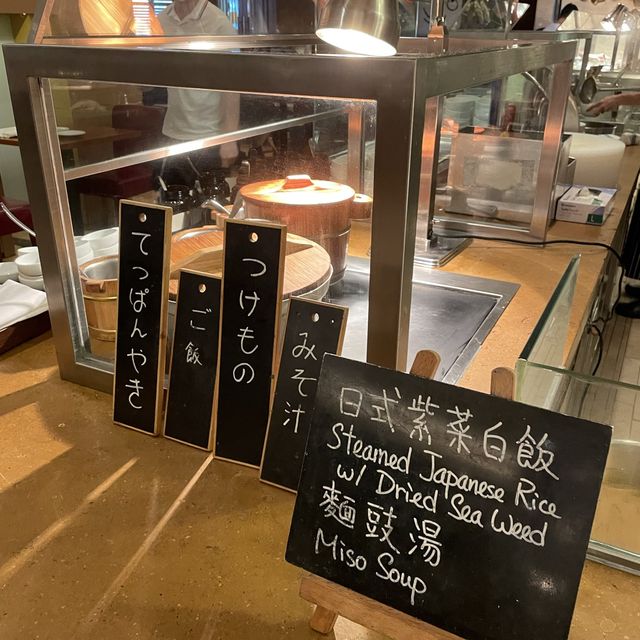 てっぱんやき
ご飯
つけもの
みそ汁
日式紫菜白飯
Steamed Japanese Rice
w/ Dried Sea Weed
麵豉湯
Miso Soup